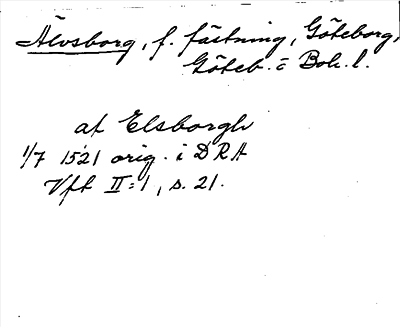 Älvsborg, f. fästning, Göteborg,
Göteb. o Boh. l.
at Elsborgh
1/7 1521 orig. i DRA
Vft II:1, s. 21.